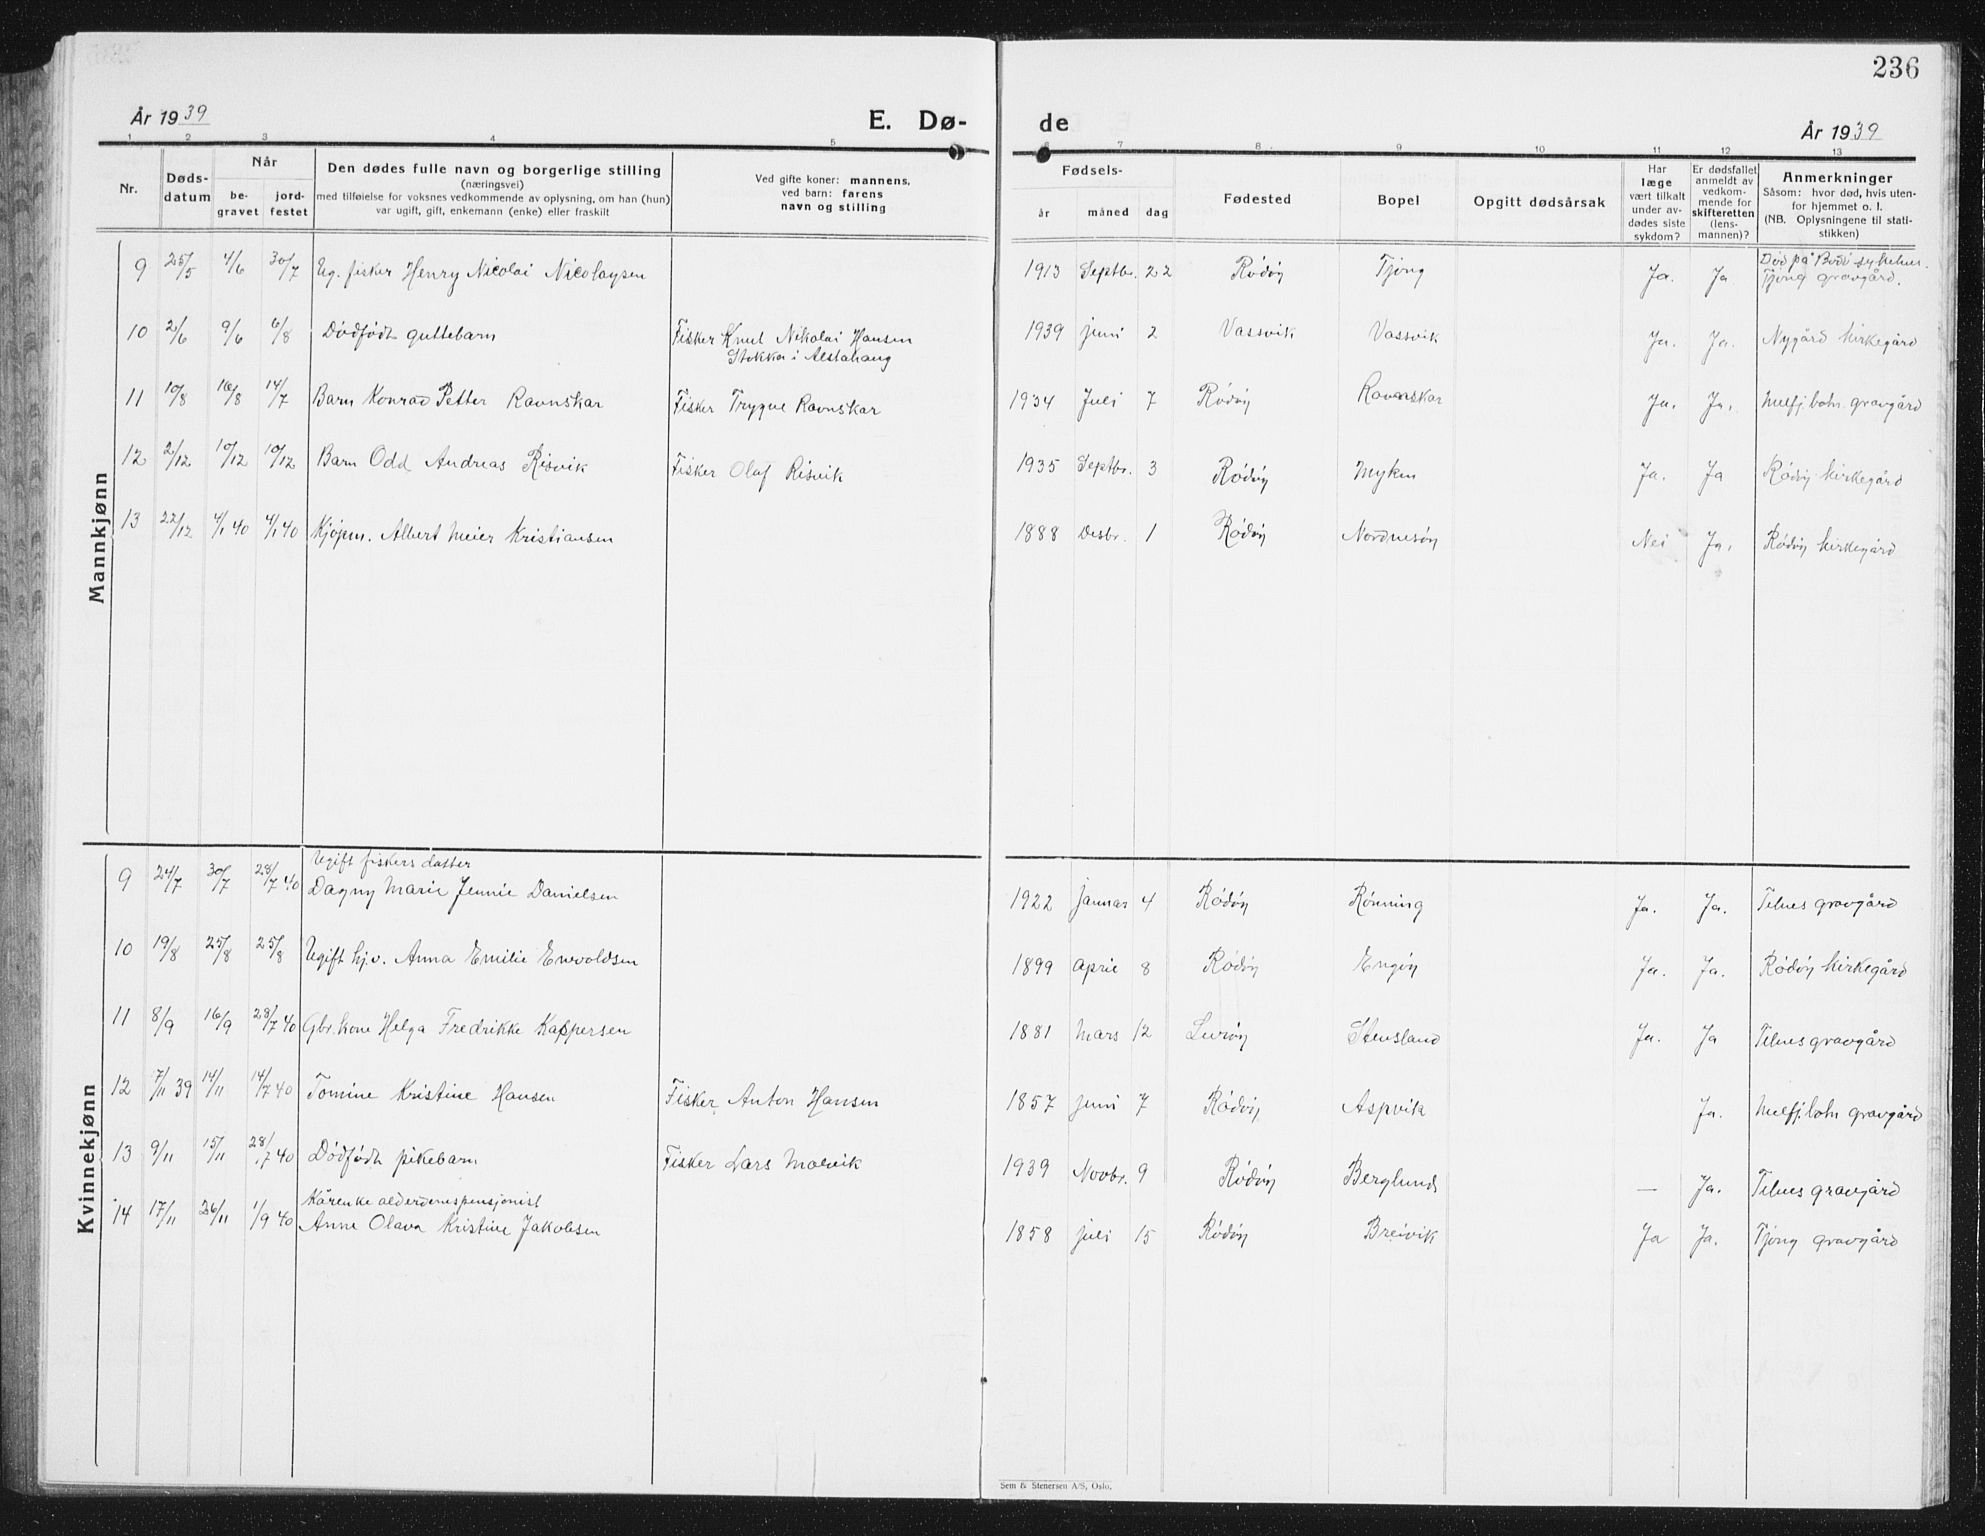 236
År 1939 E. Dø- de År 1939
1 2 3 4 5 6 7 8 9 10 11 12 13
Nr.
Døds-
datum
Når
be-
gravet
jord-
festet
Den dødes fulle navn og borgerlige stilling
(næringsvei)
med tilføielse for voksnes vedkommende av oplysning, om han (hun)
var ugift, gift, enkemann (enke) eller fraskilt
Ved gifte koner: mannens,
ved barn: farens
navn og stilling
Fødsels-
år måned dag
Fødested
Bopel
Opgitt dødsårsak
Har
læge
vært tilkalt
under av-
dødes siste
sykdom?
Er dødsfallet
anmeldt av
vedkom-
mende for
skifteretten
(lens-
mannen)?
Anmerkninger
Såsom: hvor død, hvis uten-
for hjemmet o. l.
(NB. Oplysningene til stati-
stikken)
Mannkjønn
9 25/5 4/6 30/7 Ug. fisker Henry Nicolai Nicolaysen 1913 Septbr. 22 Rødøy Tjong Ja. Ja Død på Bodø sykehus.
Tjong gravgård.
10 2/6 9/6 6/8 Dødfødt guttebarn Fisker Knut Nikolai Hansen 1939 juni 2 Vassvik Vassvik Ja. Ja. Nygård kirkegård
Stokka i Alstahaug
11 10/8 16/8 14/7 Barn Konrad Petter Ravnskar Fisker Trygve Ravnskar 1934 Juli 7 Rødøy Ravnskar Ja. Ja. Melfj.botn gravgård
12 2/12 10/12 10/12 Barn Odd Andreas Risvik Fisker Olaf Risvik 1935 Septbr. 3 Rødøy Myken Ja. Ja Rødøy kirkegård
13 22/12 4/1 40 4/1 40 Kjøpm. Albert Meier Kristiansen 1888 Desbr. 1 Rødøy Nordnesøy Nei Ja. Rødøy kirkegård
Kvinnekjønn
Ugift fiskers datter
9 24/7 30/7 28/7 40 Dagny Marie Jennie Danielsen 1922 januar 4 Rødøy Rønning Ja. Ja. Telnes gravgård
10 19/8 25/8 25/8 Ugift hj.v. Anna Emilie Envoldsen 1899 april 8 Rødøy Engøy Ja. Ja. Rødøy kirkegård
11 8/9 16/9 28/7 40 Gbr.kone Helga Fredrikke Kaspersen 1881 Mars 12 Lurøy Stensland Ja. Ja Telnes gravgård
12 7/11 39 14/11 14/7 40 Tomine Kristine Hansen Fisker Anton Hansen 1857 juni 7 Rødøy Aspvik Ja. Melfj.botn gravgård
13 9/11 15/11 28/7 40 Dødfødt pikebarn Fisker Lars Molvik 1939 Novbr. 9 Rødøy Berglund — Ja. Telnes gravgård
Kårenke alderdomspensjonist
14 17/11 26/11 1/9 40 Anne Olava Kristine Jakobsen 1858 juli 15 Rødøy Breivik Ja Ja. Tjong gravgård
Sem & Stenersen A/S, Oslo.